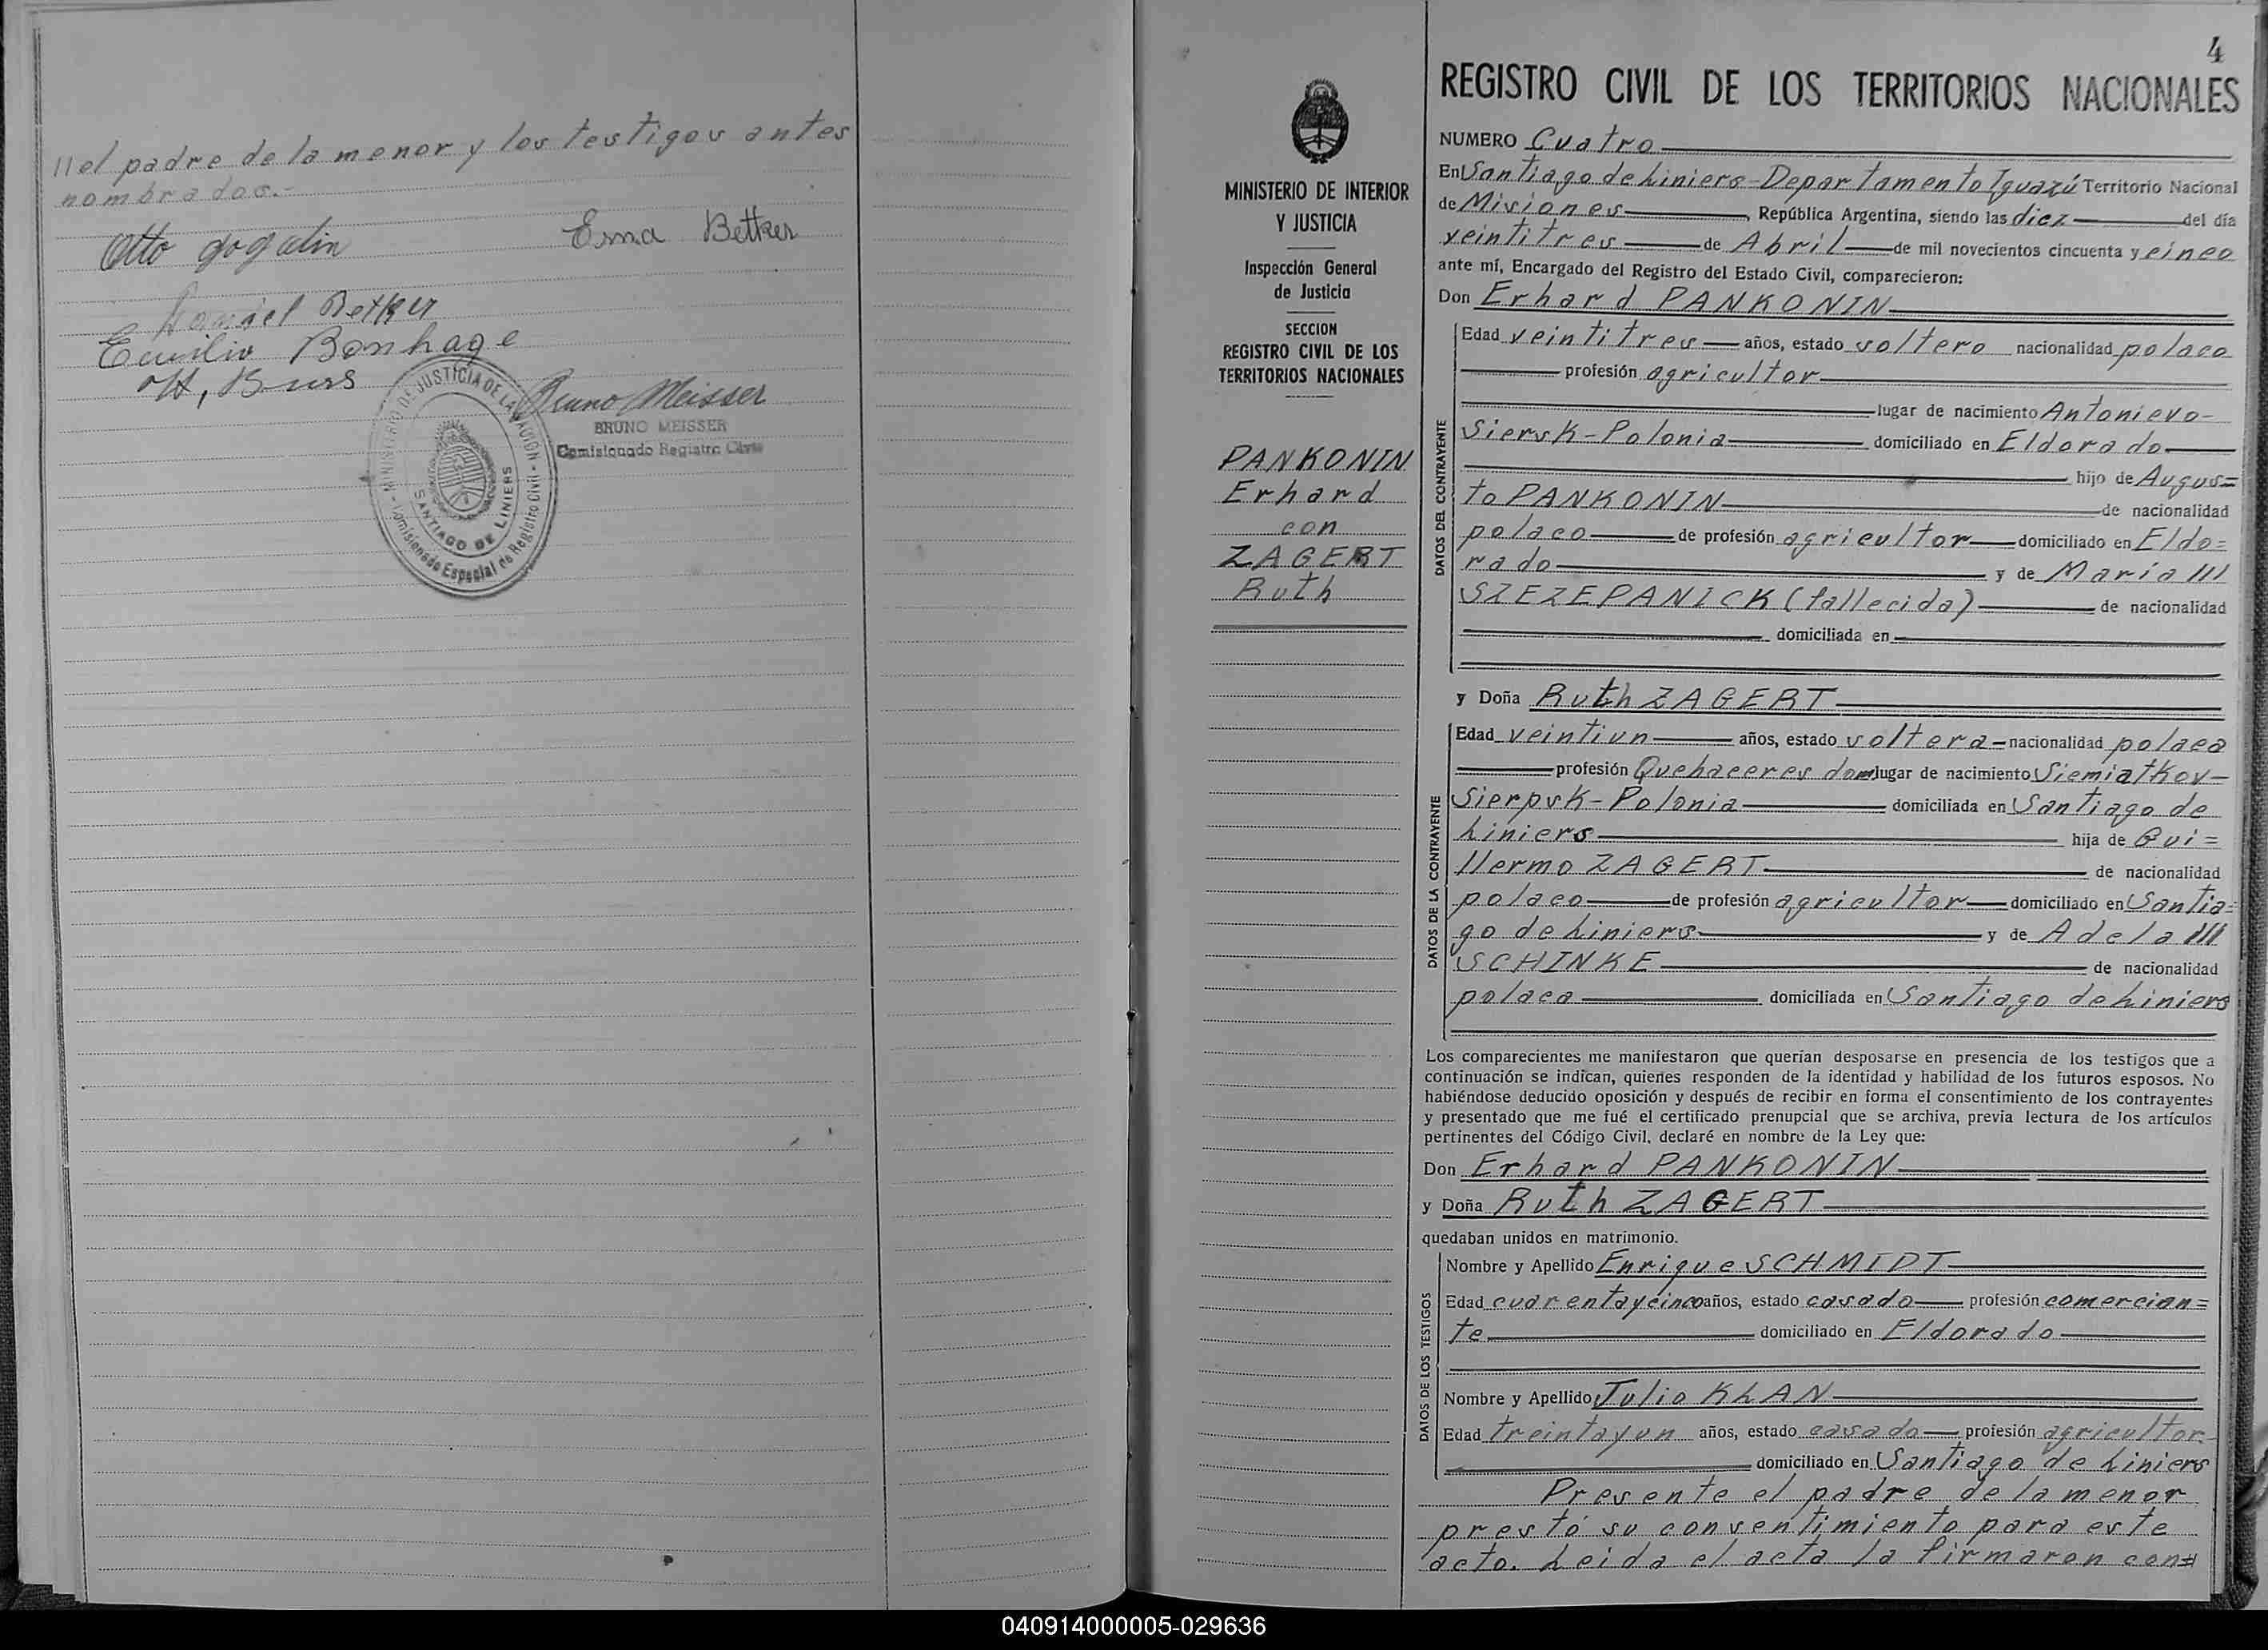 //el padre de la menor y los testigos antes
nombrados.-
Otto gogolin
Erna Betker
Daniel Betker
Emilio Bonhage
Bruno Meisser
BRUNO MEISSER
Comisionado Registro Civil
MINISTERIO DE JUSTICIA DE LA NACION
SANTIAGO DE LINIERS
Comisionado Especial de Registro Civil
4
MINISTERIO DE INTERIOR
Y JUSTICIA
Inspección General
de Justicia
SECCION
REGISTRO CIVIL DE LOS
TERRITORIOS NACIONALES
PANKONIN
Erhard
con
ZAGERT
Ruth
REGISTRO CIVIL DE LOS TERRITORIOS NACIONALES
NUMERO Cuatro
En Santiago de Liniers-Departamento Iguazú Territorio Nacional
de Misiones, República Argentina, siendo las diez del día
veintitres de Abril de mil novecientos cincuenta y cinco
ante mí, Encargado del Registro del Estado Civil, comparecieron:
Don Erhard PANKONIN
DATOS DEL CONTRAYENTE
Edad veintitres años, estado soltero nacionalidad polaco
profesión agricultor
lugar de nacimiento Antonievo-
Siersk-Polonia domiciliado en Eldorado
hijo de Augus=
to PANKONIN de nacionalidad
polaco de profesión agricultor domiciliado en Eldo=
rado y de María ///
SZEZEPANICK (fallecida) de nacionalidad
domiciliada en
y Doña Ruth ZAGERT
DATOS DE LA CONTRAYENTE
Edad veintiun años, estado soltera nacionalidad polaca
profesión Quehaceres dom. lugar de nacimiento Siemiatkov-
Sierpsk-Polonia domiciliada en Santiago de
Liniers hija de Gui=
llermo ZAGERT de nacionalidad
polaco de profesión agricultor domiciliado en Santia=
go de Liniers y de Adela ///
SCHINKE de nacionalidad
polaca domiciliada en Santiago de Liniers
Los comparecientes me manifestaron que querían desposarse en presencia de los testigos que a
continuación se indican, quienes responden de la identidad y habilidad de los futuros esposos. No
habiéndose deducido oposición y después de recibir en forma el consentimiento de los contrayentes
y presentado que me fué el certificado prenupcial que se archiva, previa lectura de los artículos
pertinentes del Código Civil, declaré en nombre de la Ley que:
Don Erhard PANKONIN
y Doña Ruth ZAGERT
quedaban unidos en matrimonio.
DATOS DE LOS TESTIGOS
Nombre y Apellido Enrique SCHMIDT
Edad cuarentaycinco años, estado casado profesión comercian=
te domiciliado en Eldorado
Nombre y Apellido Julio KLAN
Edad treintayun años, estado casado profesión agricultor.
domiciliado en Santiago de Liniers
Presente el padre de la menor
prestó su consentimiento para este
acto. Leida el acta la firmaron con//
040914000005-029636